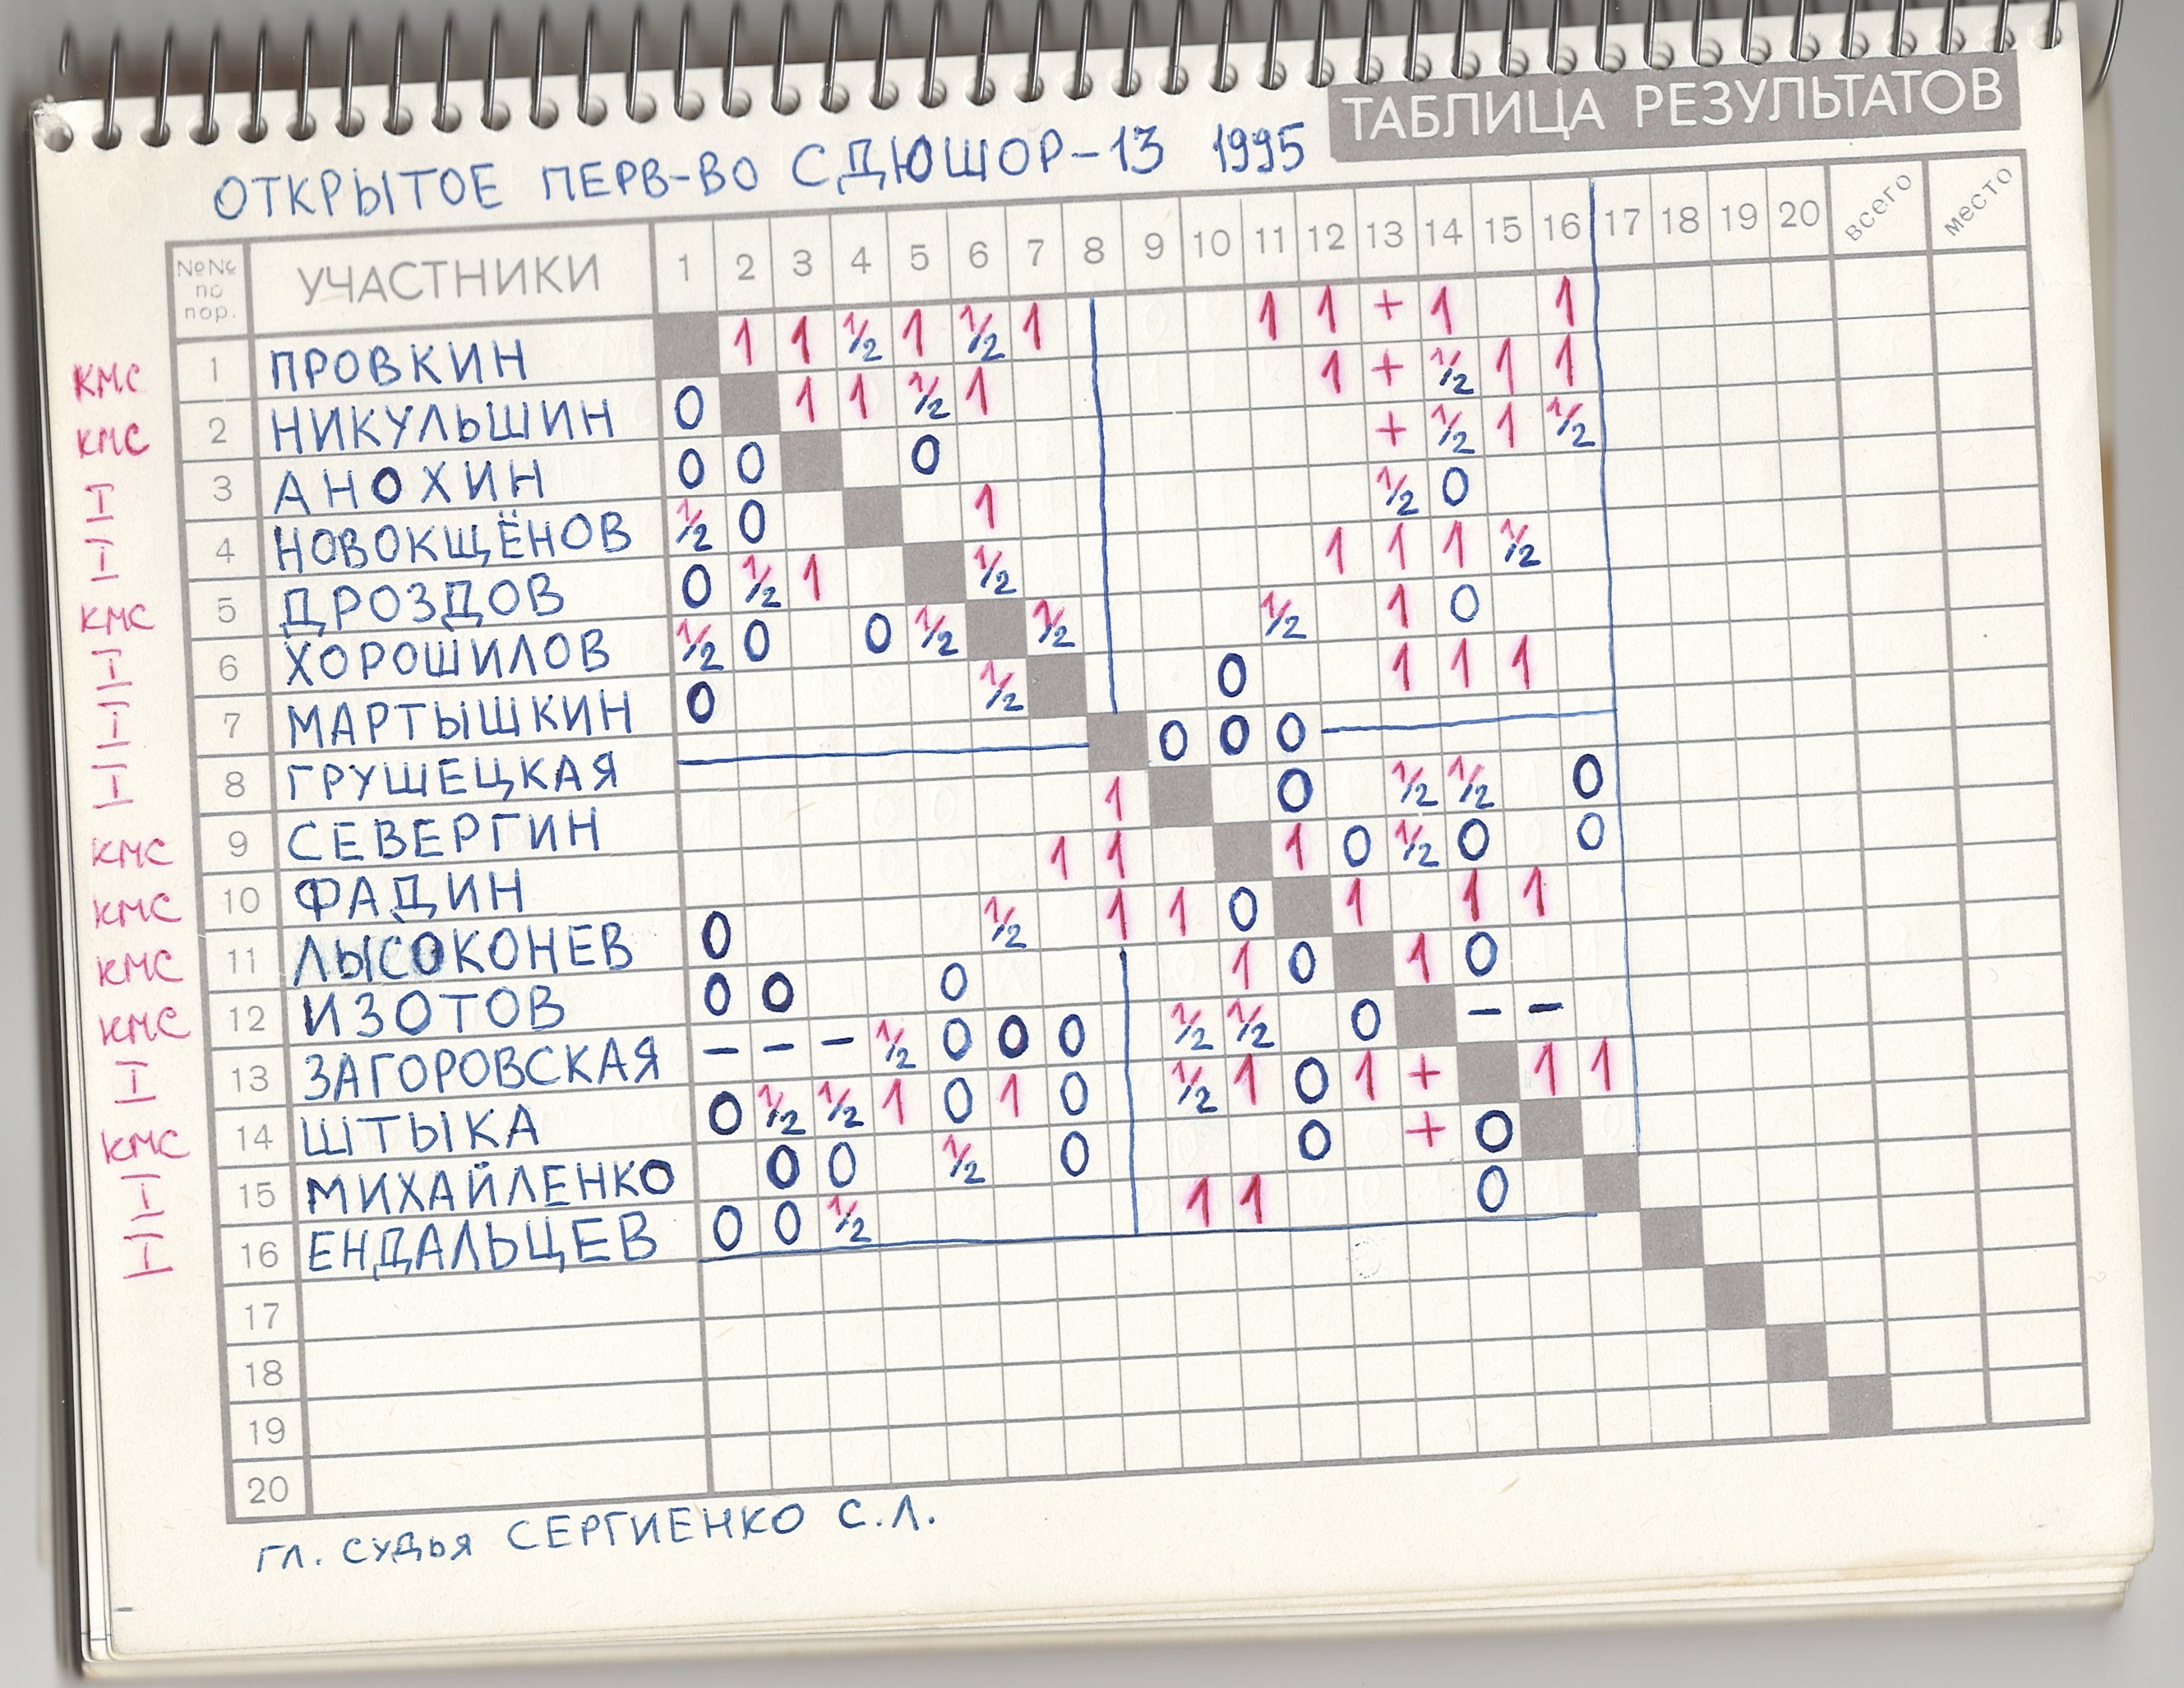 ТАБЛИЦА РЕЗУЛЬТАТОВ
ОТКРЫТОЕ ПЕРВ-ВО СДЮШОР-13 1995
№№ по пор. УЧАСТНИКИ 1 2 3 4 5 6 7 8 9 10 11 12 13 14 15 16 17 18 19 20 всего место
КМС 1 ПРОВКИН 1 1 1/2 1 1/2 1 1 1 + 1 1
КМС 2 НИКУЛЬШИН 0 1 1 1/2 1 1 + 1/2 1 1
I 3 АНОХИН 0 0 0 + 1/2 1 1/2
I 4 НОВОКЩЁНОВ 1/2 0 1 1/2 0
КМС 5 ДРОЗДОВ 0 1/2 1 1/2 1 1 1 1/2
I 6 ХОРОШИЛОВ 1/2 0 0 1/2 1/2 1/2 1 0
I 7 МАРТЫШКИН 0 1/2 0 1 1 1
I 8 ГРУШЕЦКАЯ 0 0 0
КМС 9 СЕВЕРГИН 1 0 1/2 1/2 0
КМС 10 ФАДИН 1 1 1 0 1/2 0 0
КМС 11 ЛЫСОКОНЕВ 0 1/2 1 1 0 1 1 1
КМС 12 ИЗОТОВ 0 0 0 1 0 1 0
I 13 ЗАГОРОВСКАЯ – – – 1/2 0 0 0 1/2 1/2 0 – –
КМС 14 ШТЫКА 0 1/2 1/2 1 0 1 0 1/2 1 0 1 + 1 1
I 15 МИХАЙЛЕНКО 0 0 1/2 0 0 + 0
I 16 ЕНДАЛЬЦЕВ 0 0 1/2 1 1 0
17
18
19
20
гл. судья СЕРГИЕНКО С.Л.